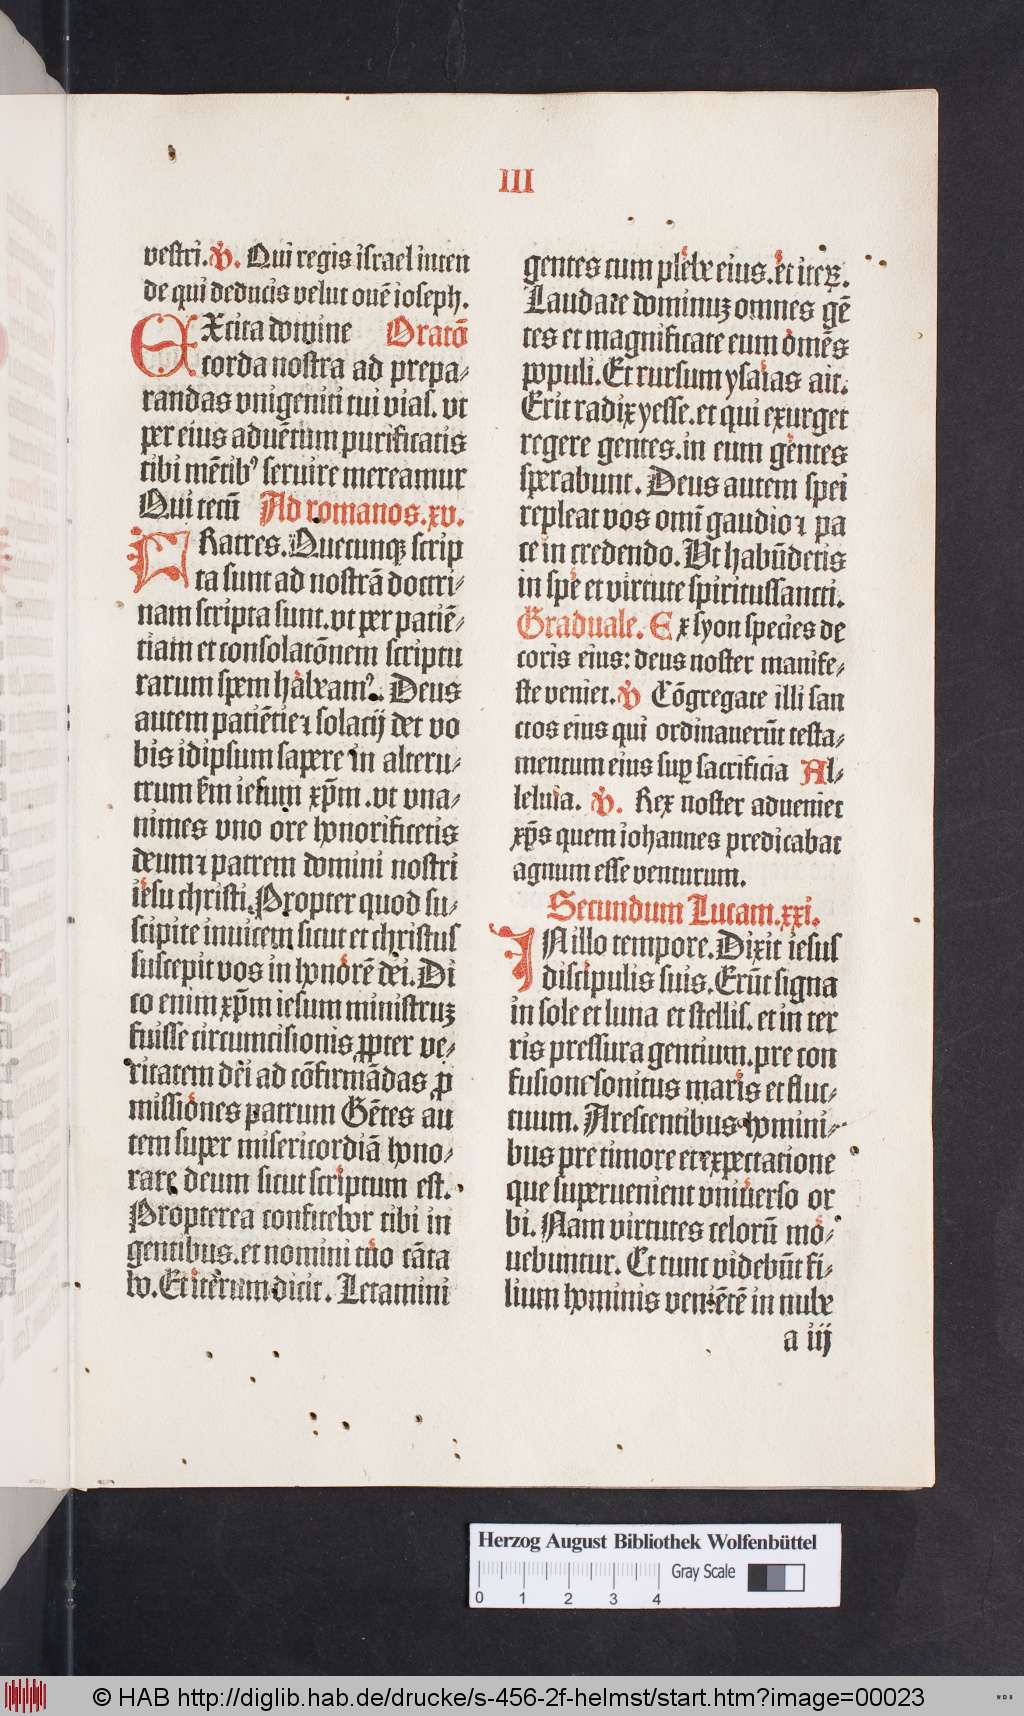 III
vestri. ℣. Qui regis israel inten
de qui deducis velut ouē ioseph.
EXcita domine Oratō
corda nostra ad prepa⸗
randas vnigeniti tui vias. vt
per eius aduētum purificatis
tibi mētibꝰ seruire mereamur
Qui tecū Ad romanos.xv.
FRatres. Quecunqꝫ scrip
ta sunt ad nostrā doctri⸗
nam scripta sunt. vt per patiē⸗
tiam et consolatōnem scriptu
rarum spem habeamꝰ. Deus
autem patiētie ⁊ solacij det vo
bis idipsum sapere in alteru⸗
trum ẜm iesum xp̄m. vt vna⸗
nimes vno ore honorificetis
deum ⁊ patrem domini nostri
iesu christi. Propter quod su⸗
scipite inuicem sicut et christus
suscepit vos in honorē dei. Di
co enim xp̄m iesum ministruꝫ
fuisse circumcisionis ꝓpter ve⸗
ritatem dei ad cōfirmādas ꝓ
missiones patrum Gētes au
tem super misericordiā hono⸗
rare deum sicut scriptum est.
Propterea confitebor tibi in
gentibus. et nomini tuo cāta
bo. Et iterum dicit. Letamini
gentes cum plebe eius. et iteꝝ.
Laudate dominuꝫ omnes gē
tes et magnificate eum omēs
populi. Et rursum ysaias ait.
Erit radix yesse. et qui exurget
regere gentes. in eum gentes
sperabunt. Deus autem spei
repleat vos omī gaudio ⁊ pa
ce in credendo. Vt habūdetis
in spe et virtute spiritussancti.
Graduale. Ex syon species de
coris eius: deus noster manife⸗
ste veniet. ℣ Cōgregate illi san
ctos eius qui ordinauerūt testa⸗
mentum eius suꝑ sacrificia Al⸗
leluia. ℣. Rex noster adueniet
xp̄s quem iohannes predicabat
agnum esse venturum.
Secundum Lucam.xxi.
IN illo tempore. Dixit iesus
discipulis suis. Erūt signa
in sole et luna et stellis. et in ter
ris pressura gentium. pre con
fusione sonitus maris et fluc⸗
tuum. Arescentibus homini⸗
bus pre timore et expectatione
que superuenient vniuerso or
bi. Nam virtutes celorū mo⸗
uebuntur. Et tunc videbūt fi⸗
lium hominis veniētē in nube
a iij
Herzog August Bibliothek Wolfenbüttel
Gray Scale
0 1 2 3 4
© HAB http://diglib.hab.de/drucke/s-456-2f-helmst/start.htm?image=00023